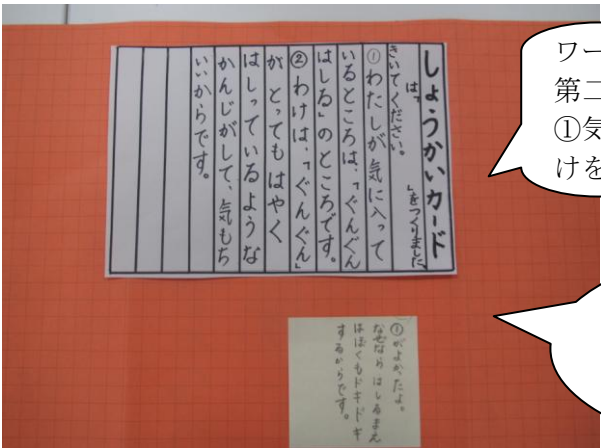 しょうかいカード
は、「　　　　」をつくりました。
きいてください。
①わたしが気に入って
いるところは、「ぐんぐん
はしる」のところです。
②わけは、「ぐんぐん」
が とってもはやく
はしっているような
かんじがして、気もち
いいからです。
①がよかったよ。
なぜなら はしるまえ
はぼくもドキドキ
するからです。
ワー
第二
①気
けを